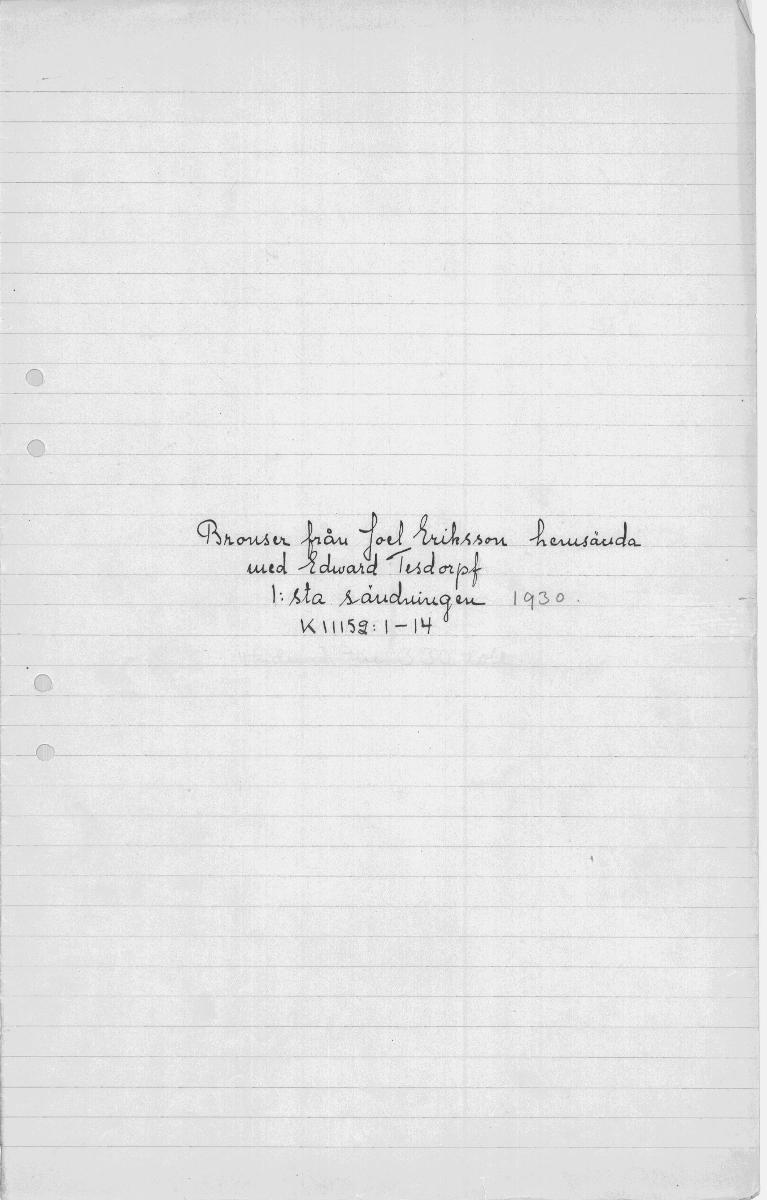 Bronser från Joel Eriksson hemsända
med Edward Tesdorpf
1:sta sändningen 1930.
K 11152:1-14